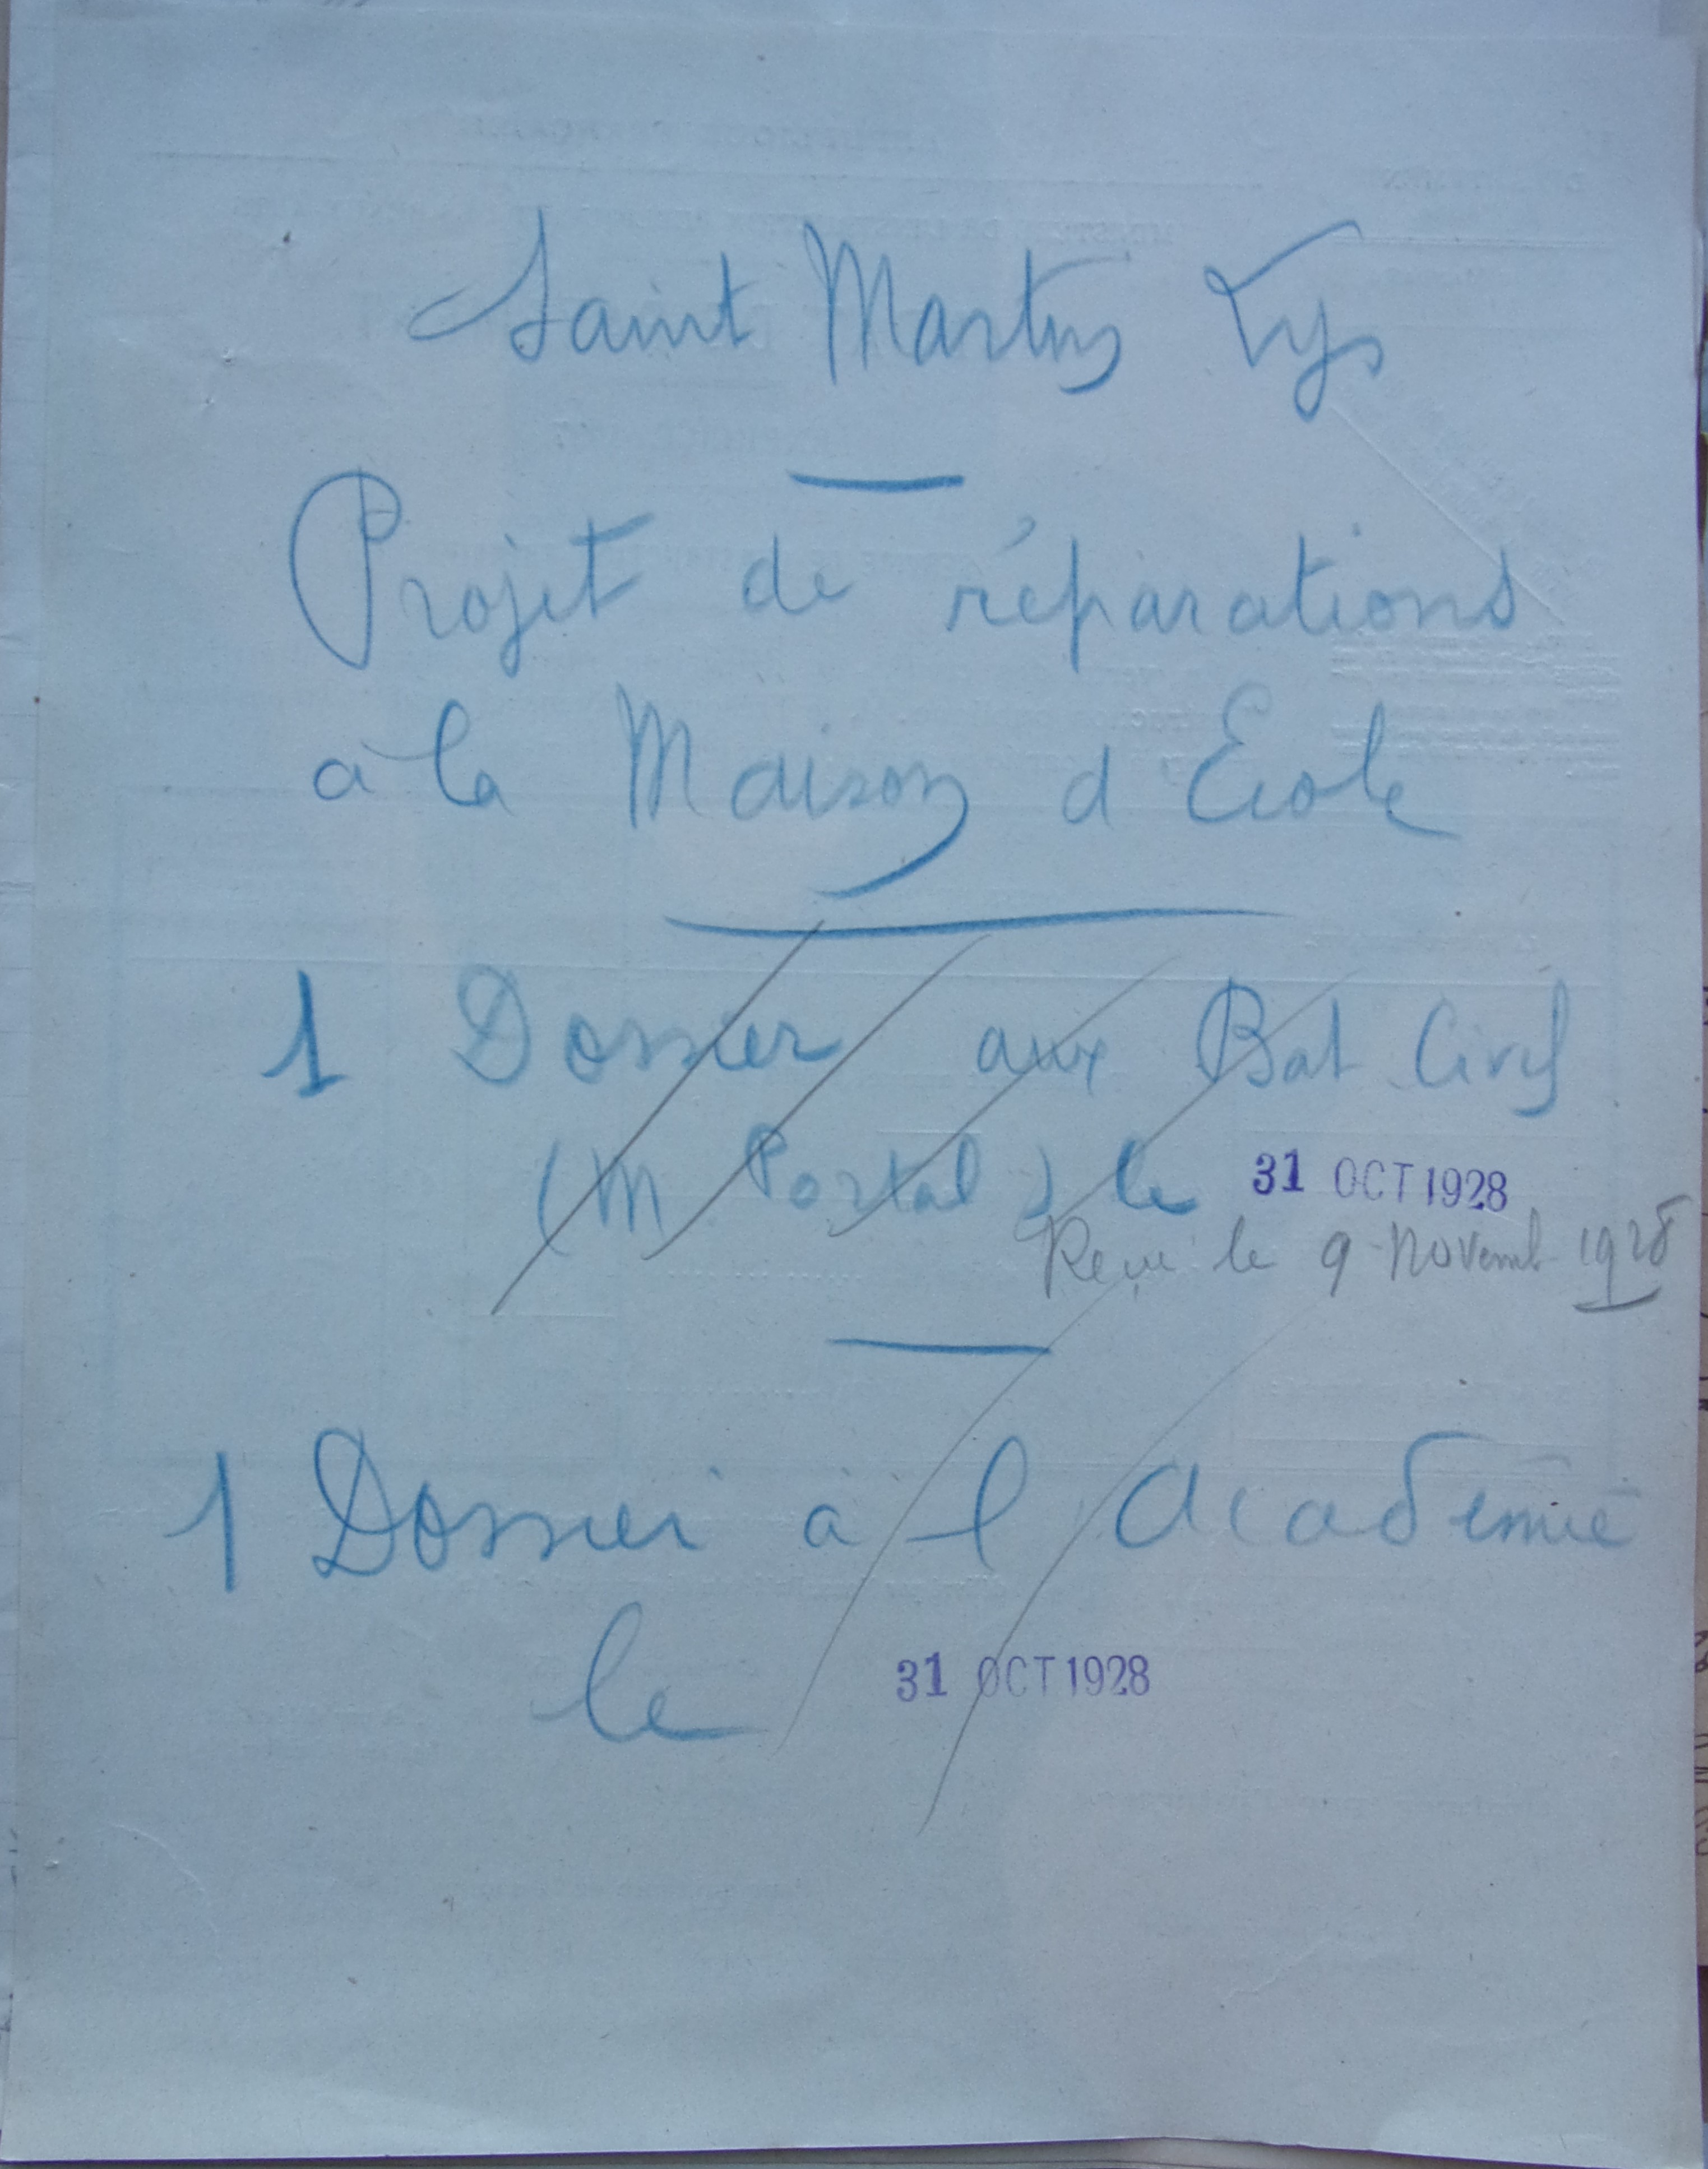 Saint Martin Lys
Projet de réparations
à la Maison d'Ecole
1 Dossier aux Bat Civils
(M. Portal) le 31 OCT 1928
Reçu le 9 Novemb 1928
1 Dossier à l'Académie
le 31 OCT 1928